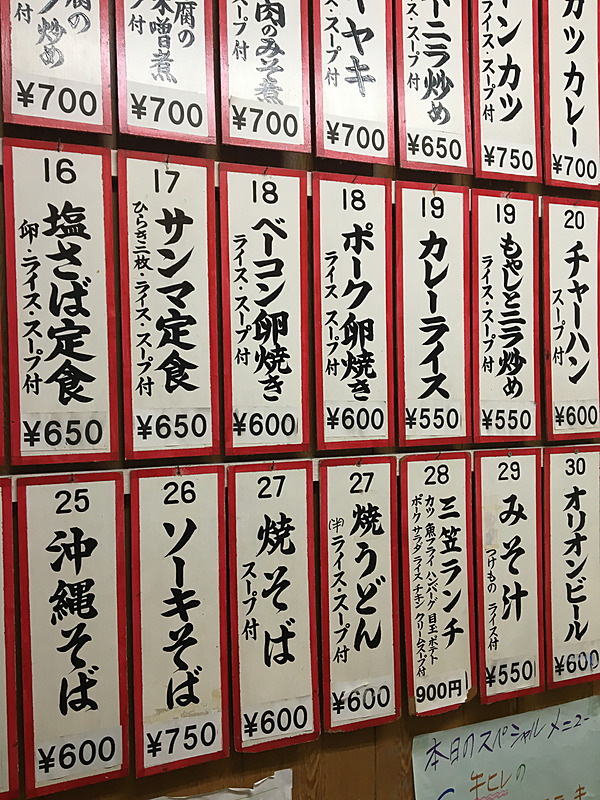 炒め
付
¥700
腐の
味噌煮
スープ付
¥700
肉のみそ煮
ス・スープ付
¥700
ヤキ
スープ付
¥700
ニラ炒め
スープ付
¥650
ンカツ
イス・スープ付
¥750
カツカレー
¥700
16
塩さば定食
卵・ライス・スープ付
¥650
17
サンマ定食
ひらき二枚・ライス・スープ付
¥650
18
ベーコン卵焼き
ライス・スープ付
¥600
18
ポーク卵焼き
ライス・スープ付
¥600
19
カレーライス
¥550
19
もやしとニラ炒め
ライス・スープ付
¥550
20
チャーハン
スープ付
¥600
25
沖縄そば
¥600
26
ソーキそば
¥750
27
焼そば
スープ付
¥600
27
焼うどん
(半)ライス・スープ付
¥600
28
三笠ランチ
カツ 魚フライ ハンバーグ 目玉 ポテト
ポーク サラダ ライス チキン クリームスープ付
900円
29
みそ汁
つけもの ライス付
¥550
30
オリオンビール
¥600
本日のスペシャルメニュー
牛ヒレの